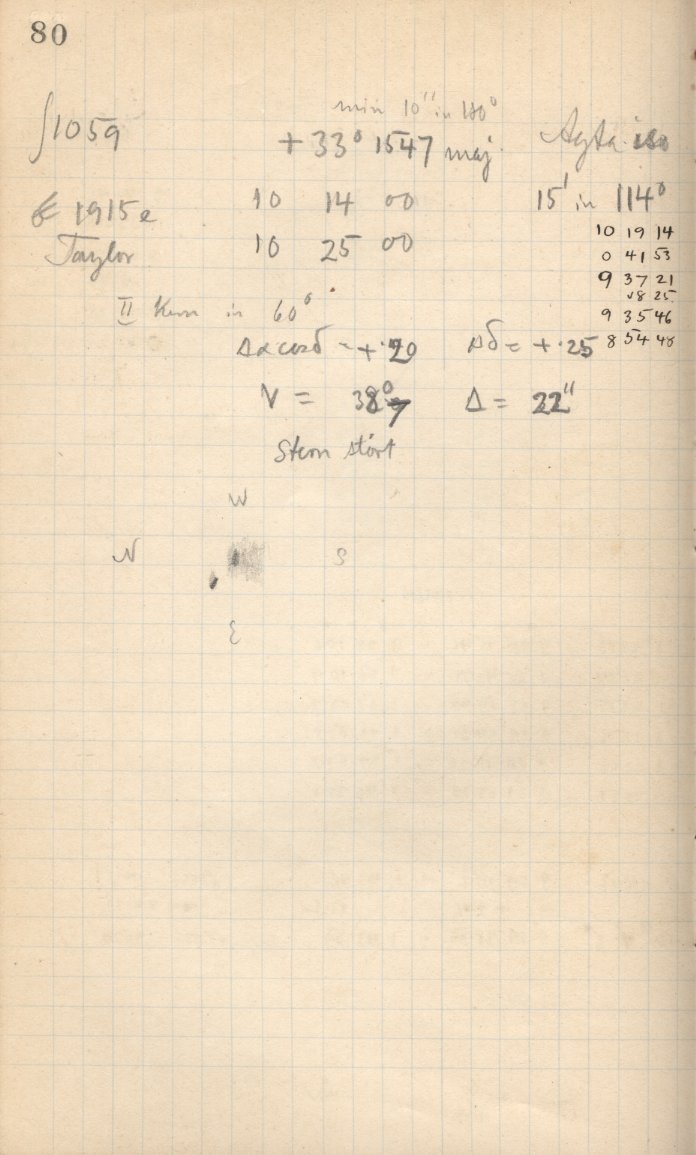 80
min 10" in 180°
∫1059 +33° 1547 maj.
1915e 10 14 00 15' in 114°
Taylor 10 25 00
10 19 14
0 41 53
9 37 21
25
9 35 46
8 54 48
II Kern in 60°
Δα cos δ = +.20 Δδ = +.25
V = 38° Δ = 22"
Stern stört
W
N S
E